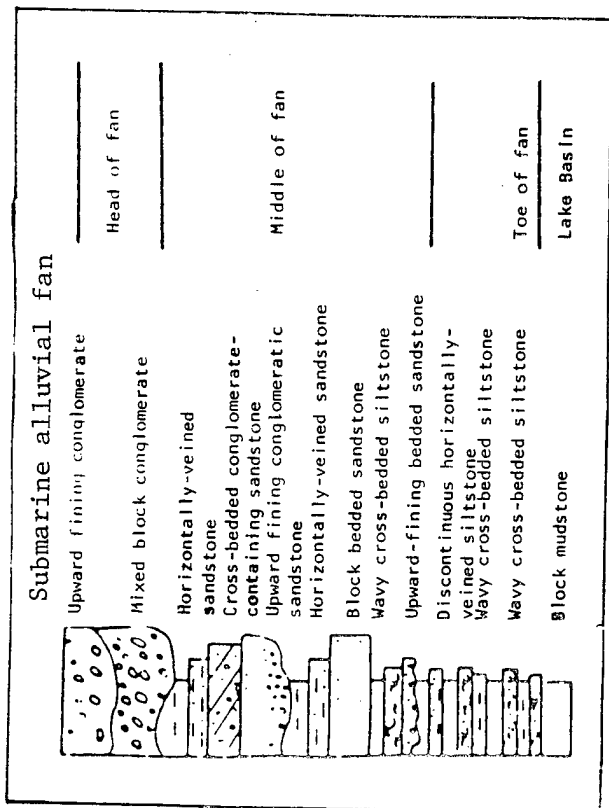 Submarine alluvial fan
Upward fining conglomerate
Head of fan
Mixed block conglomerate
Horizontally-veined
sandstone
Cross-bedded conglomerate-
containing sandstone
Upward fining conglomeratic
sandstone
Middle of fan
Horizontally-veined sandstone
Block bedded sandstone
Wavy cross-bedded siltstone
Upward-fining bedded sandstone
Discontinuous horizontally-
veined siltstone
Wavy cross-bedded siltstone
Wavy cross-bedded siltstone
Toe of fan
Block mudstone
Lake Basin